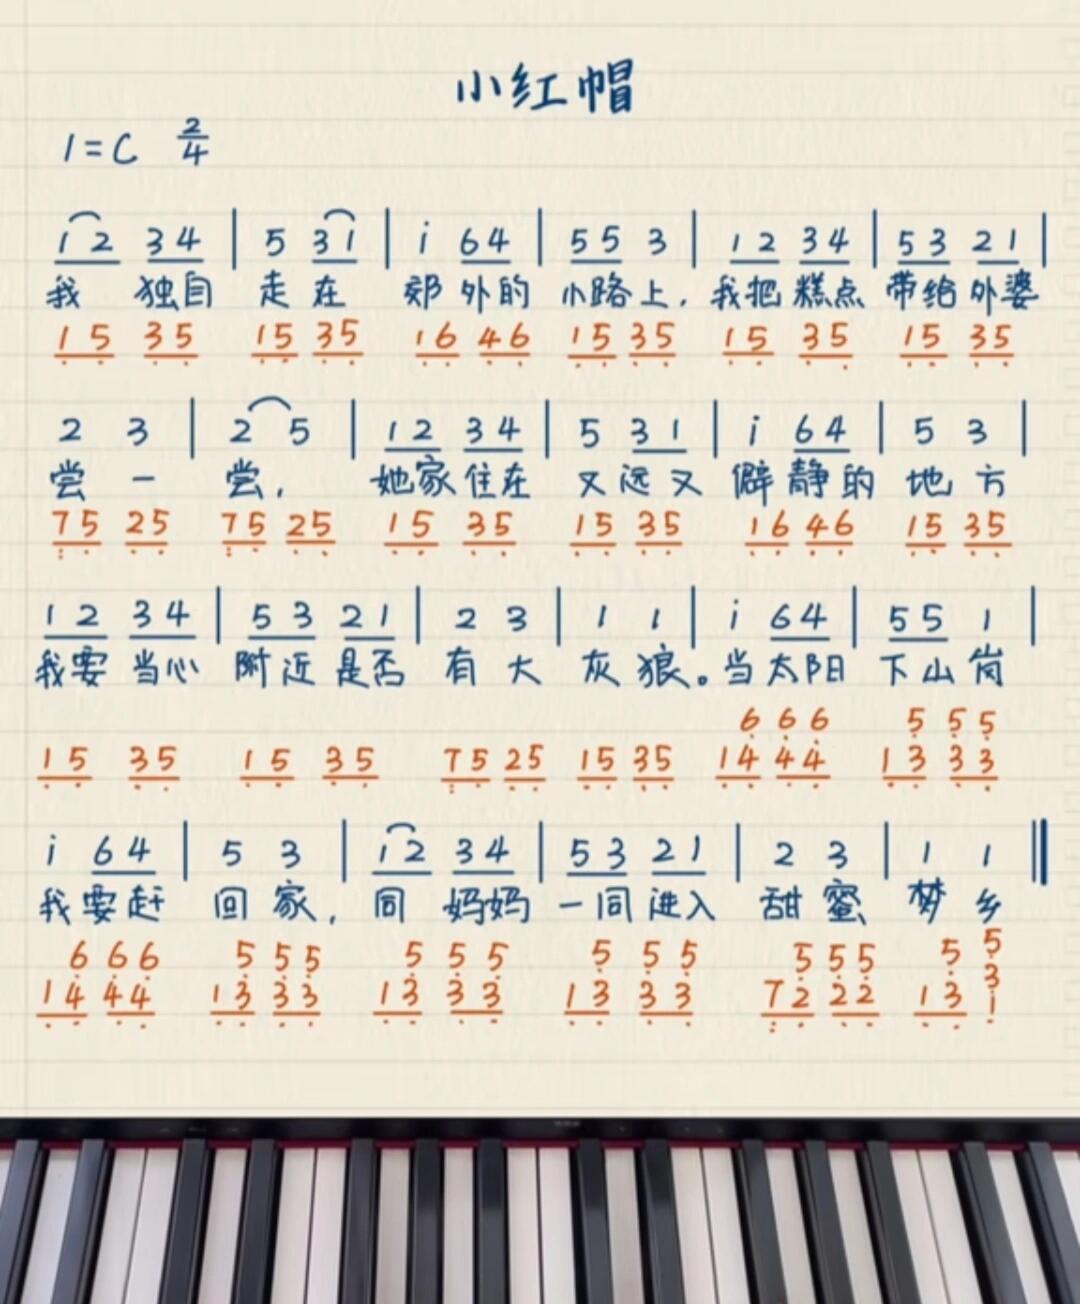 小红帽
1=C 2/4
1 2 3 4 | 5 3 1 | i 6 4 | 5 5 3 | 1 2 3 4 | 5 3 2 1 |
我 独自 走 在 郊 外的 小路上, 我把 糕点 带给 外婆
1 5 3 5 1 5 3 5 1 6 4 6 1 5 3 5 1 5 3 5 1 5 3 5
2 3 | 2 5 | 1 2 3 4 | 5 3 1 | i 6 4 | 5 3 |
尝 一 尝, 她家 住在 又 远 又 僻 静的 地 方
7 5 2 5 7 5 2 5 1 5 3 5 1 5 3 5 1 6 4 6 1 5 3 5
1 2 3 4 | 5 3 2 1 | 2 3 | 1 1 | i 6 4 | 5 5 1 |
我要 当心 附近 是否 有 大 灰 狼。当 太阳 下山 岗
6 6 6 5 5 5
1 5 3 5 1 5 3 5 7 5 2 5 1 5 3 5 1 4 4 4 1 3 3 3
i 6 4 | 5 3 | 1 2 3 4 | 5 3 2 1 | 2 3 | 1 1 ||
我 要赶 回 家, 同 妈妈 一同 进入 甜 蜜 梦 乡
6 6 6 5 5 5 5 5 5 5 5 5 5 5 5 5 5
3
1 4 4 4 1 3 3 3 1 3 3 3 1 3 3 3 7 2 2 2 1 3 1